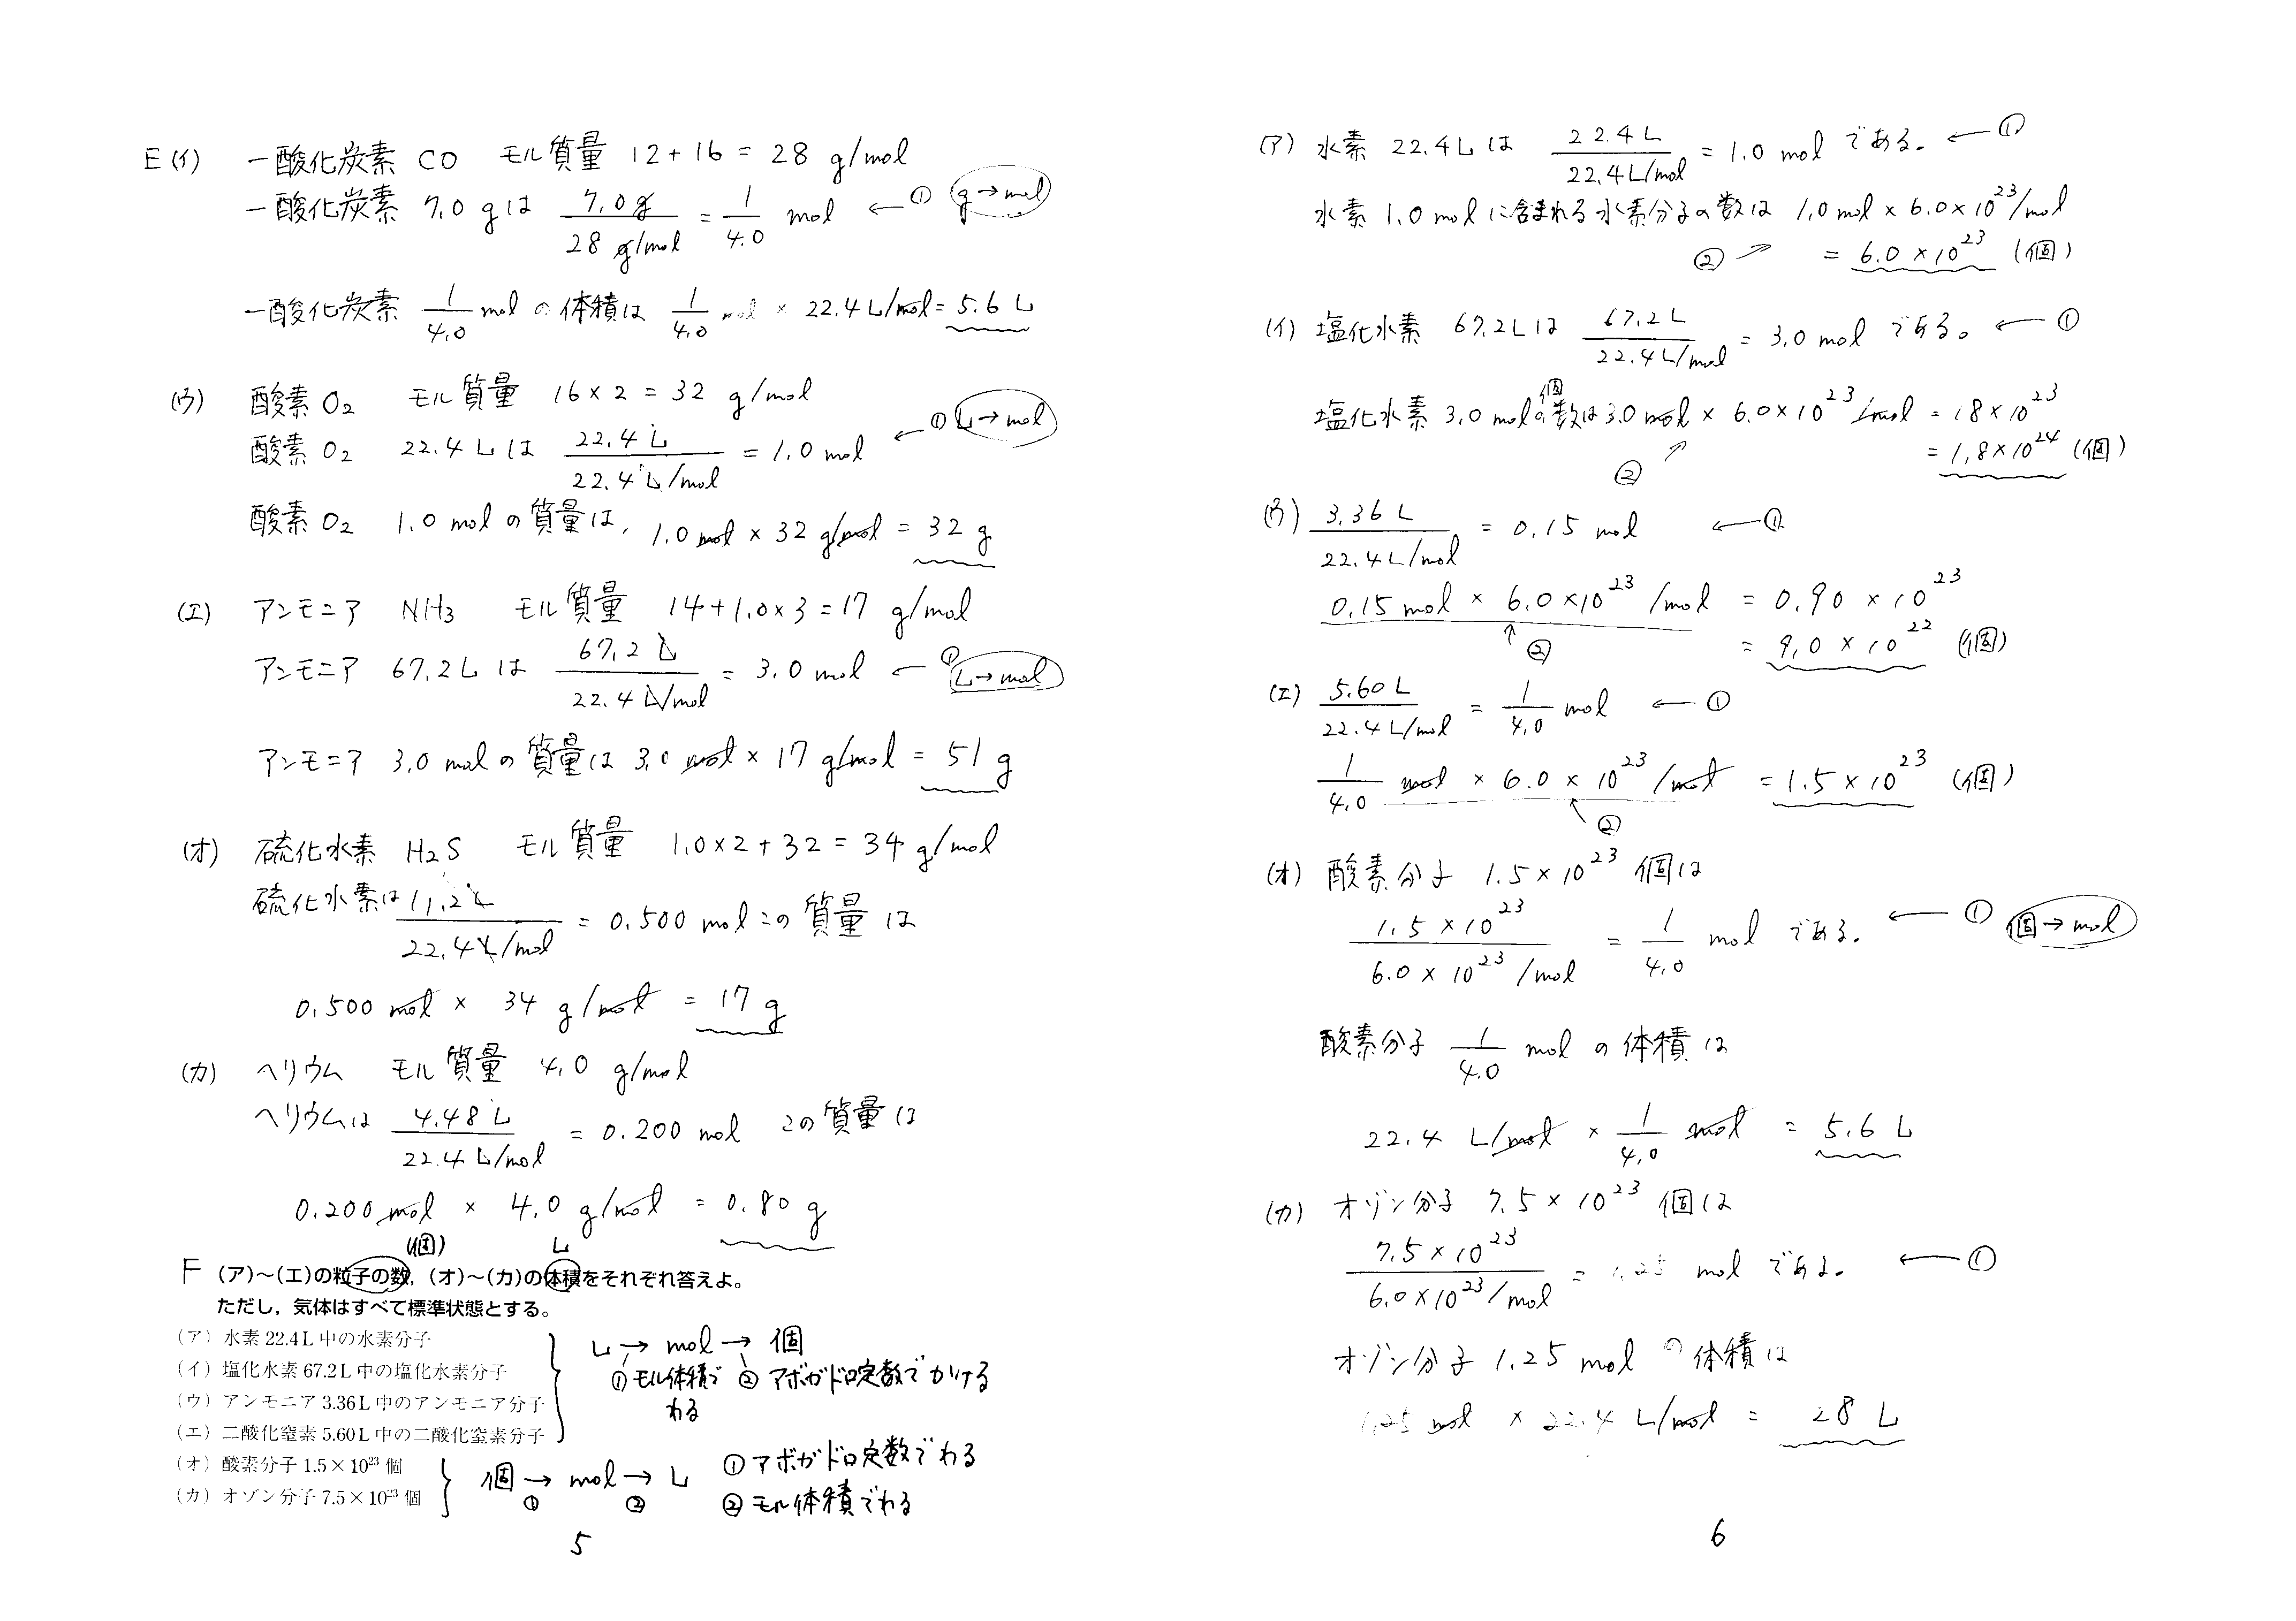 E(イ) 一酸化炭素 CO モル質量 12+16=28 g/mol
一酸化炭素 7.0 gは 7.0g/28 g/mol = 1/4.0 mol ← ① g→mol
一酸化炭素 1/4.0 molの体積は 1/4.0 mol × 22.4L/mol=5.6 L
(ウ) 酸素 O₂ モル質量 16×2=32 g/mol
酸素 O₂ 22.4 Lは 22.4 L/22.4 L/mol = 1.0 mol ← ① L→mol
酸素 O₂ 1.0 molの質量は, 1.0 mol × 32 g/mol = 32 g
(エ) アンモニア NH₃ モル質量 14+1.0×3=17 g/mol
アンモニア 67.2L は 67.2 L/22.4 L/mol = 3.0 mol ← ① L→mol
アンモニア 3.0 molの質量は 3.0 mol × 17 g/mol = 51 g
(オ) 硫化水素 H₂S モル質量 1.0×2+32=34 g/mol
硫化水素は 11.2L/22.4L/mol = 0.500 mol この質量は
0.500 mol × 34 g/mol = 17 g
(カ) ヘリウム モル質量 4.0 g/mol
ヘリウムは 4.48 L/22.4 L/mol = 0.200 mol この質量は
0.200 mol × 4.0 g/mol = 0.80 g
(個) L
F (ア)〜(エ)の粒子の数, (オ)〜(カ)の体積をそれぞれ答えよ。
ただし,気体はすべて標準状態とする。
(ア) 水素 22.4L 中の水素分子
(イ) 塩化水素 67.2L 中の塩化水素分子
(ウ) アンモニア 3.36L 中のアンモニア分子
(エ) 二酸化窒素 5.60L 中の二酸化窒素分子
L→mol→個
①モル体積でわる ②アボガドロ定数でかける
(オ) 酸素分子 1.5×10²³ 個
(カ) オゾン分子 7.5×10²³ 個
個→mol→L ①アボガドロ定数でわる
① ② ②モル体積でわる
5
(ア) 水素 22.4Lは 22.4L/22.4L/mol = 1.0 mol である。 ← ①
水素 1.0 molに含まれる水素分子の数は 1.0 mol × 6.0×10²³/mol
② = 6.0×10²³ (個)
(イ) 塩化水素 67.2Lは 67.2L/22.4L/mol = 3.0 mol である。 ← ①
塩化水素 3.0 molの個数は3.0 mol × 6.0×10²³/mol = 18×10²³
② = 1.8×10²⁴ (個)
(ウ) 3.36 L/22.4L/mol = 0.15 mol ← ①
0.15 mol × 6.0×10²³/mol = 0.90 × 10²³
② = 9.0 × 10²² (個)
(エ) 5.60L/22.4L/mol = 1/4.0 mol ← ①
1/4.0 mol × 6.0 × 10²³/mol = 1.5 × 10²³ (個)
②
(オ) 酸素分子 1.5×10²³ 個は
1.5×10²³/6.0×10²³/mol = 1/4.0 mol である。 ← ① 個→mol
酸素分子 1/4.0 molの体積は
22.4 L/mol × 1/4.0 mol = 5.6 L
(カ) オゾン分子 7.5×10²³ 個は
7.5×10²³/6.0×10²³/mol = 1.25 mol である。 ← ①
オゾン分子 1.25 molの体積は
1.25 mol × 22.4 L/mol = 28 L
6